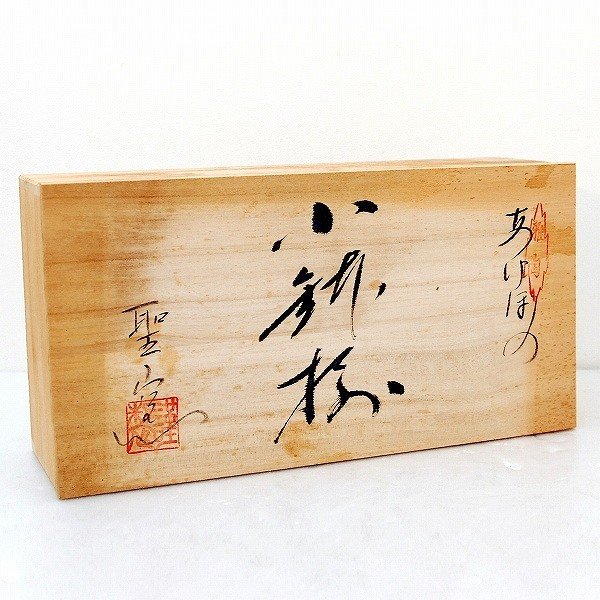 あけぼの
小鉢揃
聖窯